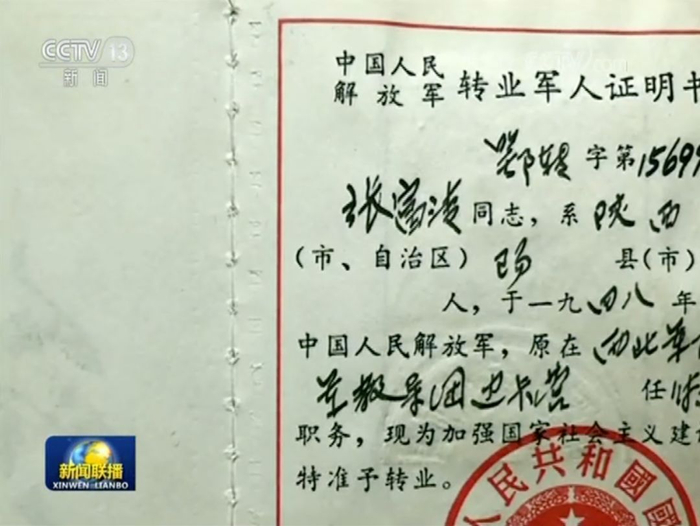 CCTV 13
新闻
tv.cctv.com
中国人民
解放军 转业军人证明书
鄂转 字第 15699
张富清 同志，系 陕西
（市、自治区） 县（市）
人，于一九四八年
中国人民解放军，原在 西北军
教导团 任
职务，现为加强国家社会主义建设
特准予转业。
人民共和國國
新闻联播
XINWEN LIANBO